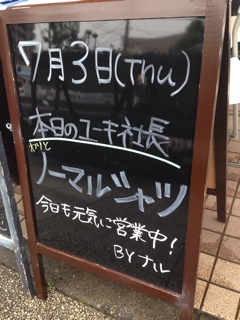 7月3日(Thu)
本日のユーキ社長
わりと
ノーマルシャツ
今日も元気に営業中!
BYナル